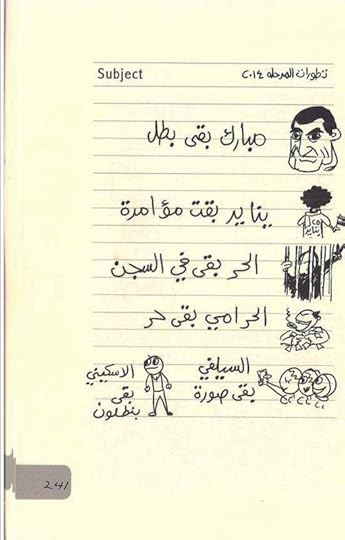 Subject
تطورات المرحلة ٢٠١٤
مبارك بقى بطل
يناير بقت مؤامرة
٢٥ يناير
الحر بقى في السجن
الحرامي بقى حر
السيلفي
بقى صورة
الاسكيني
بقى
بنطلون
241